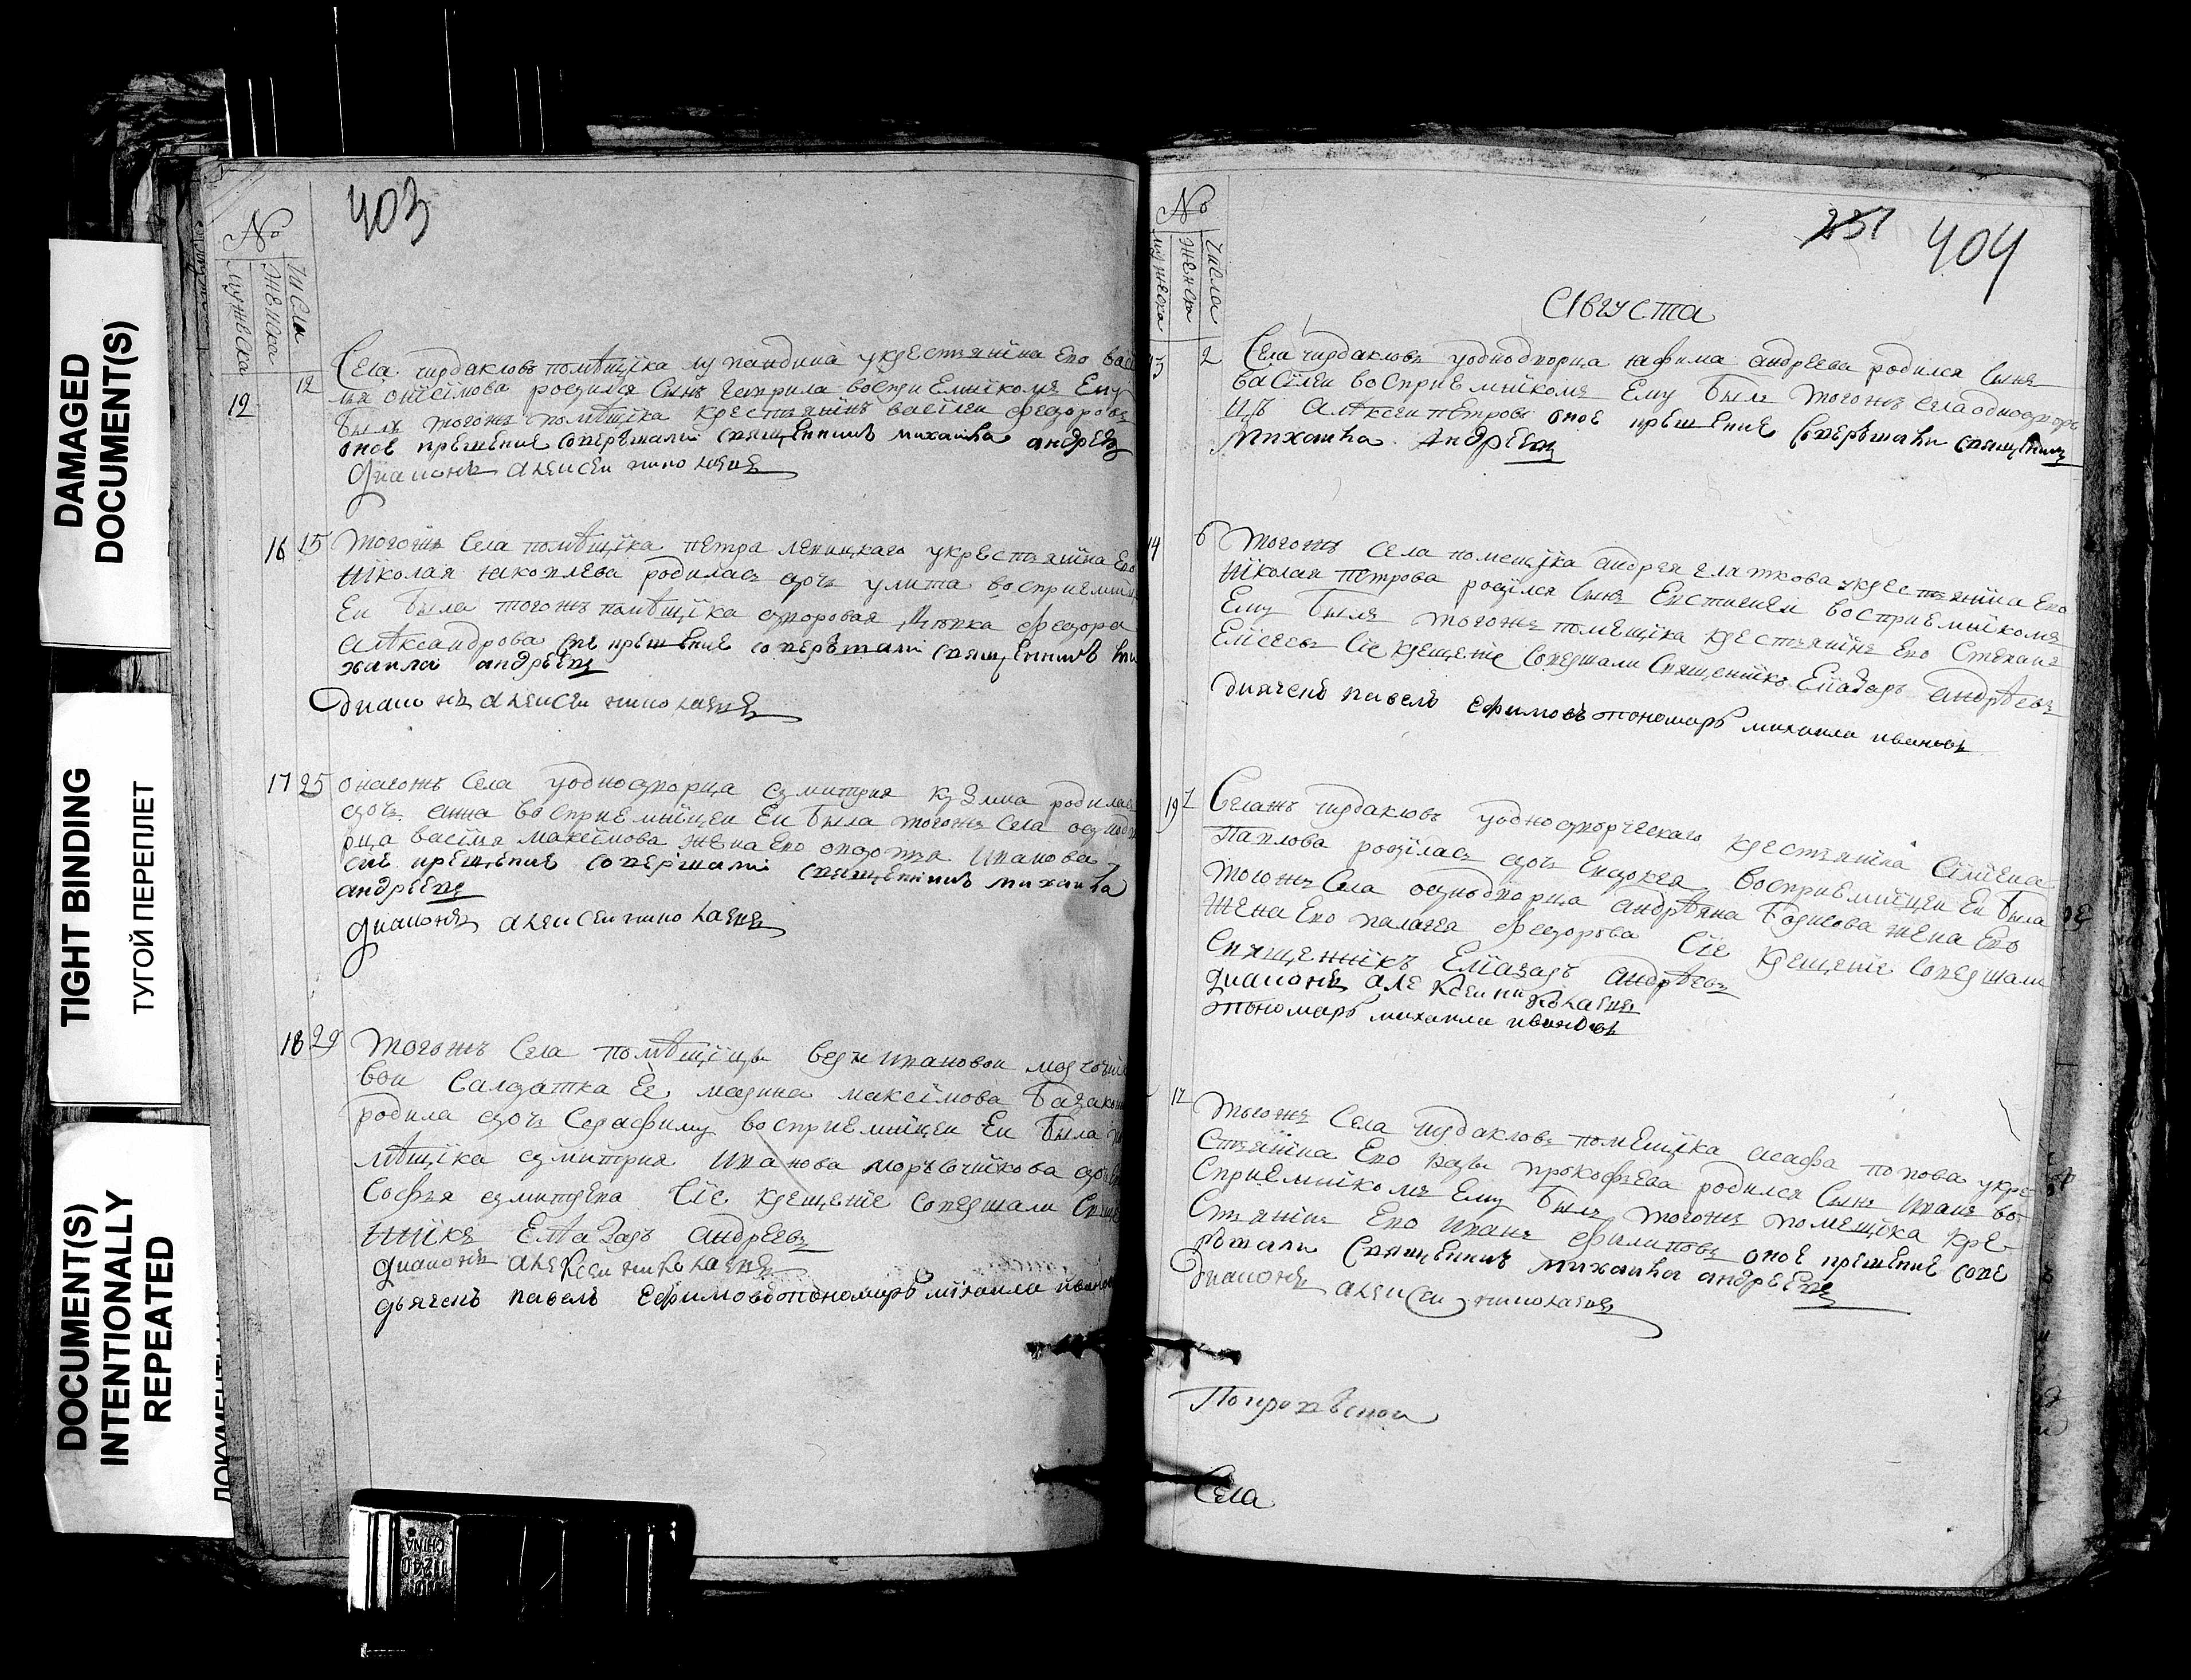 DAMAGED
DOCUMENT(S)
TIGHT BINDING
ТУГОЙ ПЕРЕПЛЕТ
DOCUMENT(S)
INTENTIONALLY
REPEATED
403
№
мужеска
женска
числа
12 12 Села чирдакловъ помѣщика у крестьянина Его
онісімова родился сынъ гаврила восприемникомъ Ему
былъ тогожъ помѣщика крестьянинъ василеи федоровъ
оное крещение совершали священникъ михаила андреевъ
диаконъ алексеи николаевъ
16 15 тогожъ села помѣщика петра у крестьянина Его
николая яковлева родилась дочь улита
Еи была тогожъ помѣщика дворовая девка федора
алѣксандрова сие крѣщение совершали священникъ ми
хаила андреевъ
диаконъ алексеи николаевъ
17 25 онагожъ села уоднодворца дмитрия кузмина родилась
дочь анна восприемницеи Еи была тогожъ села однодво
рца василя максімова жена Его авдотья иванова
сие крещение совершали священникъ михаила
андреевъ
диаконъ алексеи николаевъ
18 29 тогожъ села помѣщицы веры ивановои
вои салдатка Еѣ марина максімова
родила дочь серафиму восприемницеи Еи была по
мѣщика дмитрия иванова дочь
софья дмитрева сіе крещеніе совершали свяще
нникъ Елеазаръ андреевъ
диаконъ алексеи николаевъ
дьячекъ павелъ Ефимовъ пономарь михаила иванов
231 404
№
мужеска
женска
числа
Августа
13 2 Села чирдакловъ уоднодворца андреева родился сынъ
василеи восприемникомъ Ему былъ тогожъ села однодвор
ицъ алѣксеи петровъ оное крѣщение совершали священникъ
михаила андреевъ
14 6 тогожъ села помещика андрея у крестьянина Его
николая петрова родился сынъ Евстигнеи восприемникомъ
Ему былъ тогожъ помещика крестьянинъ Его степанъ
Елісеевъ сіе крещеніе совершали священникъ Елиазаръ андрѣевъ
диячекъ павелъ Ефимовъ пономарь михаила ивановъ
19 7 Селажъ чирдакловъ уоднодворческаго крестьянина
павлова родилась дочь Евдокея восприемницеи Еи была
тогожъ села однодворца андрѣяна борисова жена Его
жена Его палагея федорова сіе крещеніе совершали
священникъ Еліазаръ андрѣевъ
диаконъ алексеи николаевъ
пономарь михаила ивановъ
12 тогожъ села чирдакловъ помещика асафа попова укре
стьянина Его прокофьева родился сынъ иванъ во
сприемникомъ Ему былъ тогожъ помещика кре
стьянинъ Его иванъ филиповъ оное крещение сове
ршали священникъ михаила андреевъ
диаконъ алексеи николаевъ
Покровской
Села